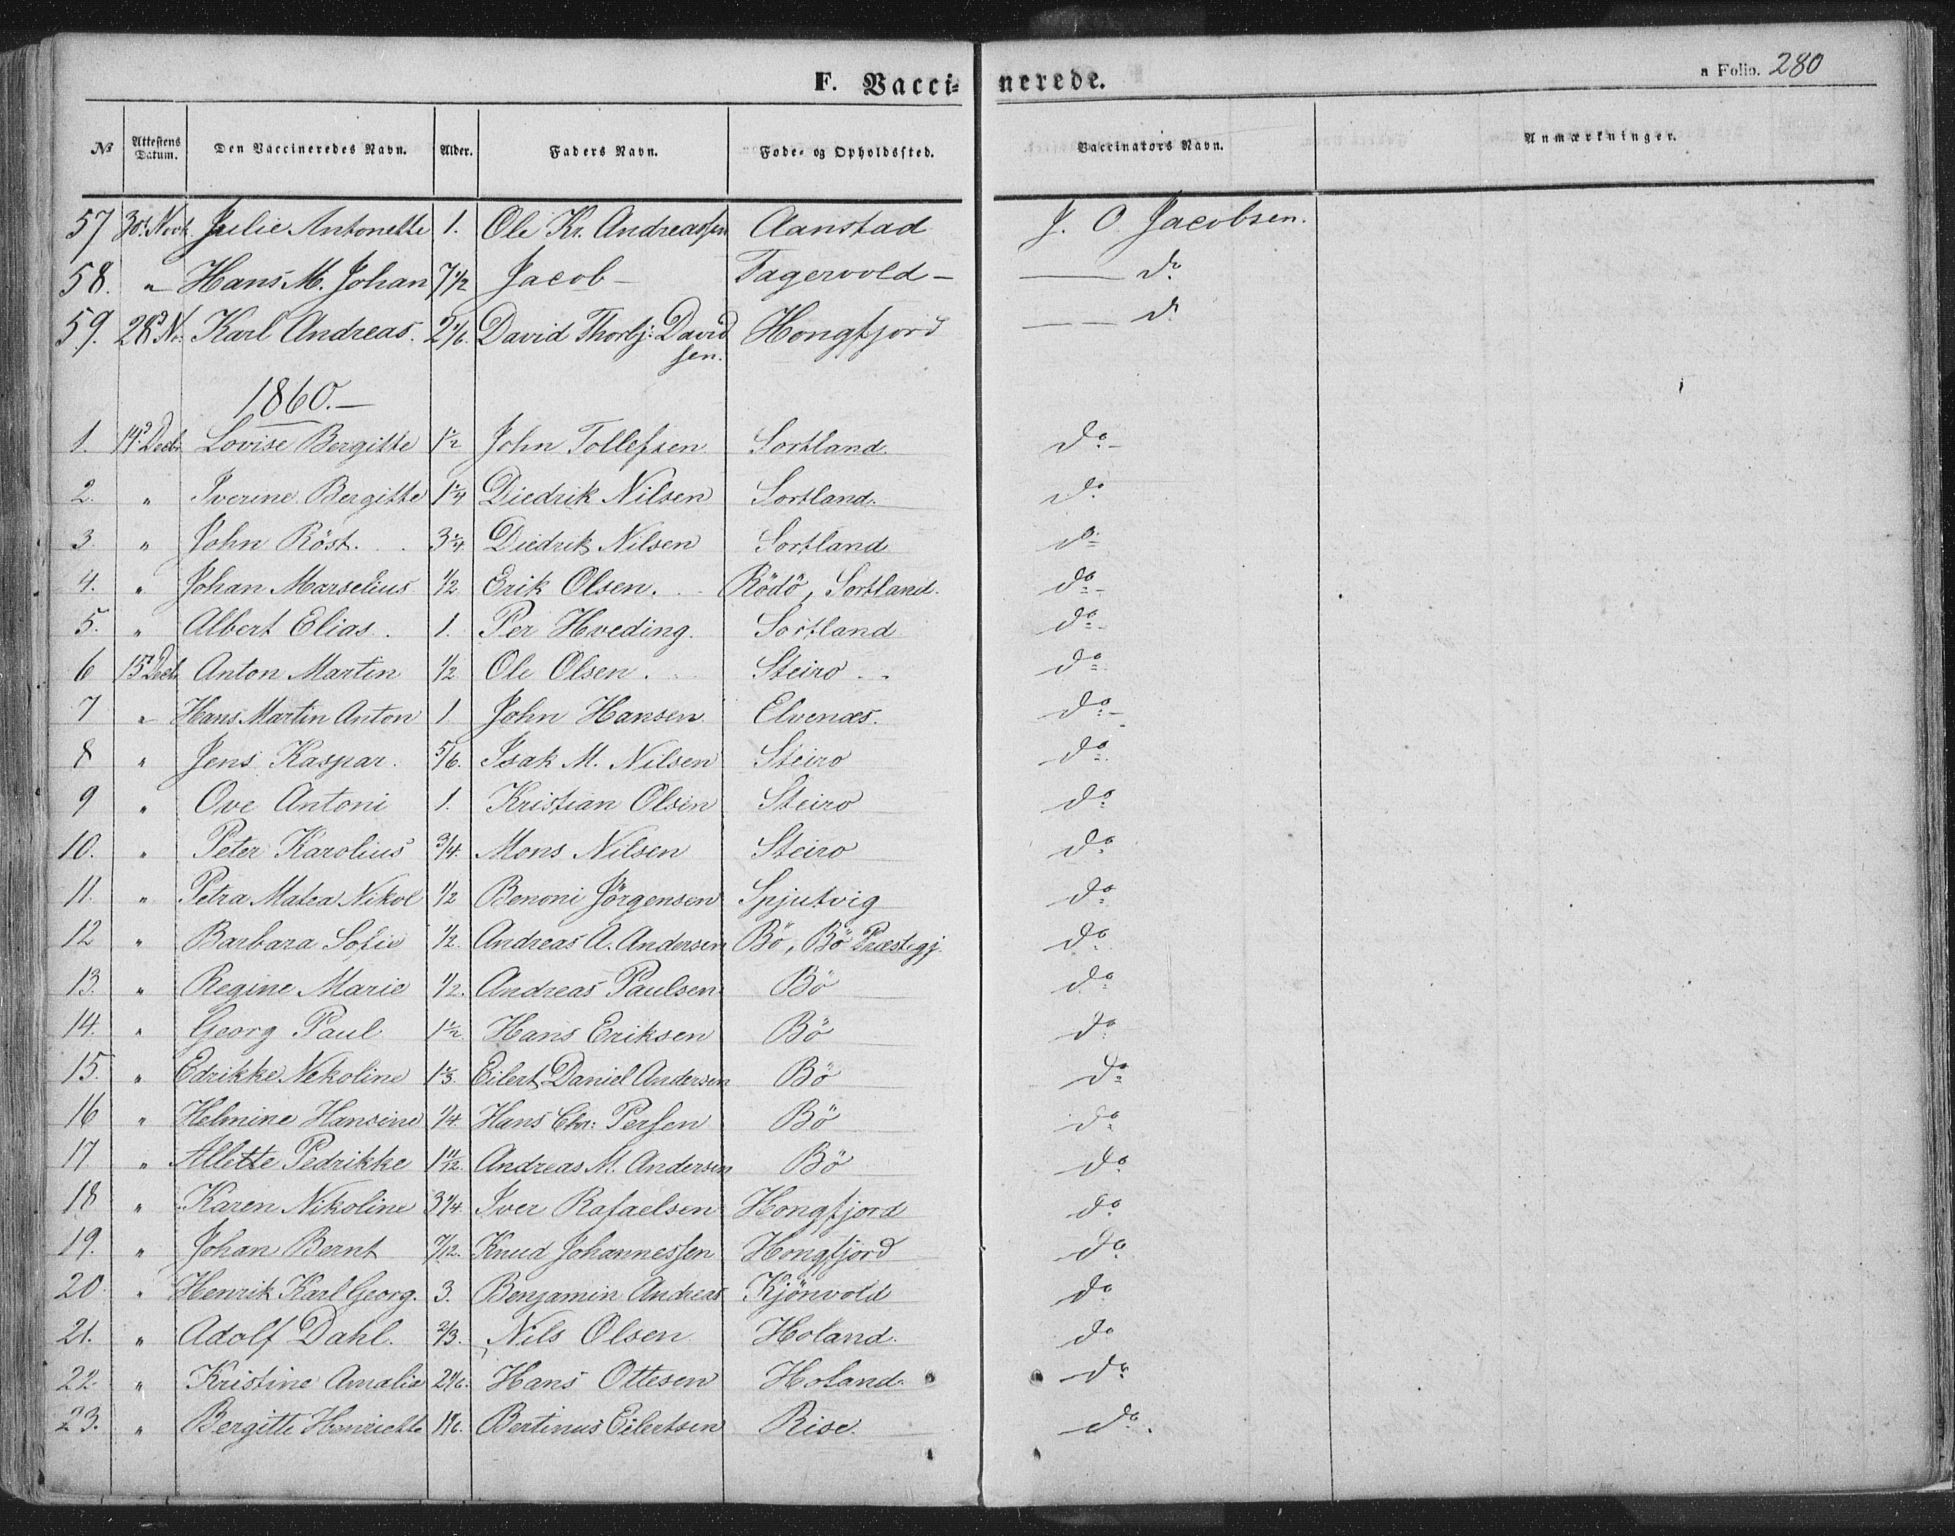 F. Vaccinerede.
a Folio. 280
№ Attestens Datum. Den Vaccineredes Navn. Alder. Faders Navn. Føde- og Opholdssted. Vaccinators Navn. Anmærkninger.
57 30. Novb. Julie Antonette 1. Ole Kr. Andreassen Aanstad J. O. Jacobsen.
58. " Hans M. Johan 7 1/2 Jacob — Fagervold — — do
59. 28 N. Karl Andreas. 2 1/6. David Thorbj: Davidsen. Hongfjord — do
1860. —
1. 14 Decb. Lovise Bergitte 1 1/2 John Tollefsen Sortland do —
2. " Iverine Bergitte 1 1/4 Diedrik Nilsen Sortland. do
3. " John Röst. 3 3/4 Diedrik Nilsen Sortland do
4. " Johan Marselius 1/2 Erik Olsen. Rödö, Sortland. do
5. " Albert Elias. 1. Per Hveding. Sortland do
6 15 Decb. Anton Martin 1/2 Ole Olsen. Steiro do
7 " Hans Martin Anton 1 John Hansen Elvenæs. do
8 " Jens Kaspar. 5/6. Isak M. Nilsen Steiro do
9 " Ove Antoni 1. Kristian Olsen Steiro do
10. " Peter Karolius 3/4. Mons Nilsen Steiro do
11. " Petra Matea Nikol 1/2 Benoni Jörgensen Spjutvig do
12 " Barbara Sofie 1/2. Andreas A. Andersen Bö, Bö Præstegj. do
13. " Regine Marie 1/2. Andreas Paulsen Bö do
14. " Georg Paul 1 1/2. Hans Eriksen Bö do
15. " Edrikke Nekoline 1 1/3. Eilert Daniel Andersen Bö do
16 " Helmine Hansine 1/4 Hans Chr: Persen Bö do
17 " Allette Pedrikke 1 11/12. Andreas M. Andersen Bö do
18 " Karen Nikoline 3 1/4. Iver Rafaelsen Hongfjord do
19. " Johan Bernt 7/12. Knud Johannessen Hongfjord do
20. " Henrik Karl Georg. 3. Benjamin Andreas Kjönvold do
21. " Adolf Dahl. 2/3. Nils Olsen Holand. do
22. " Kristine Amalie 2 1/6. Hans Ottesen Holand. do
23. " Bergitte Henriette 1 1/6. Bertinus Eilertsen Rise. do.